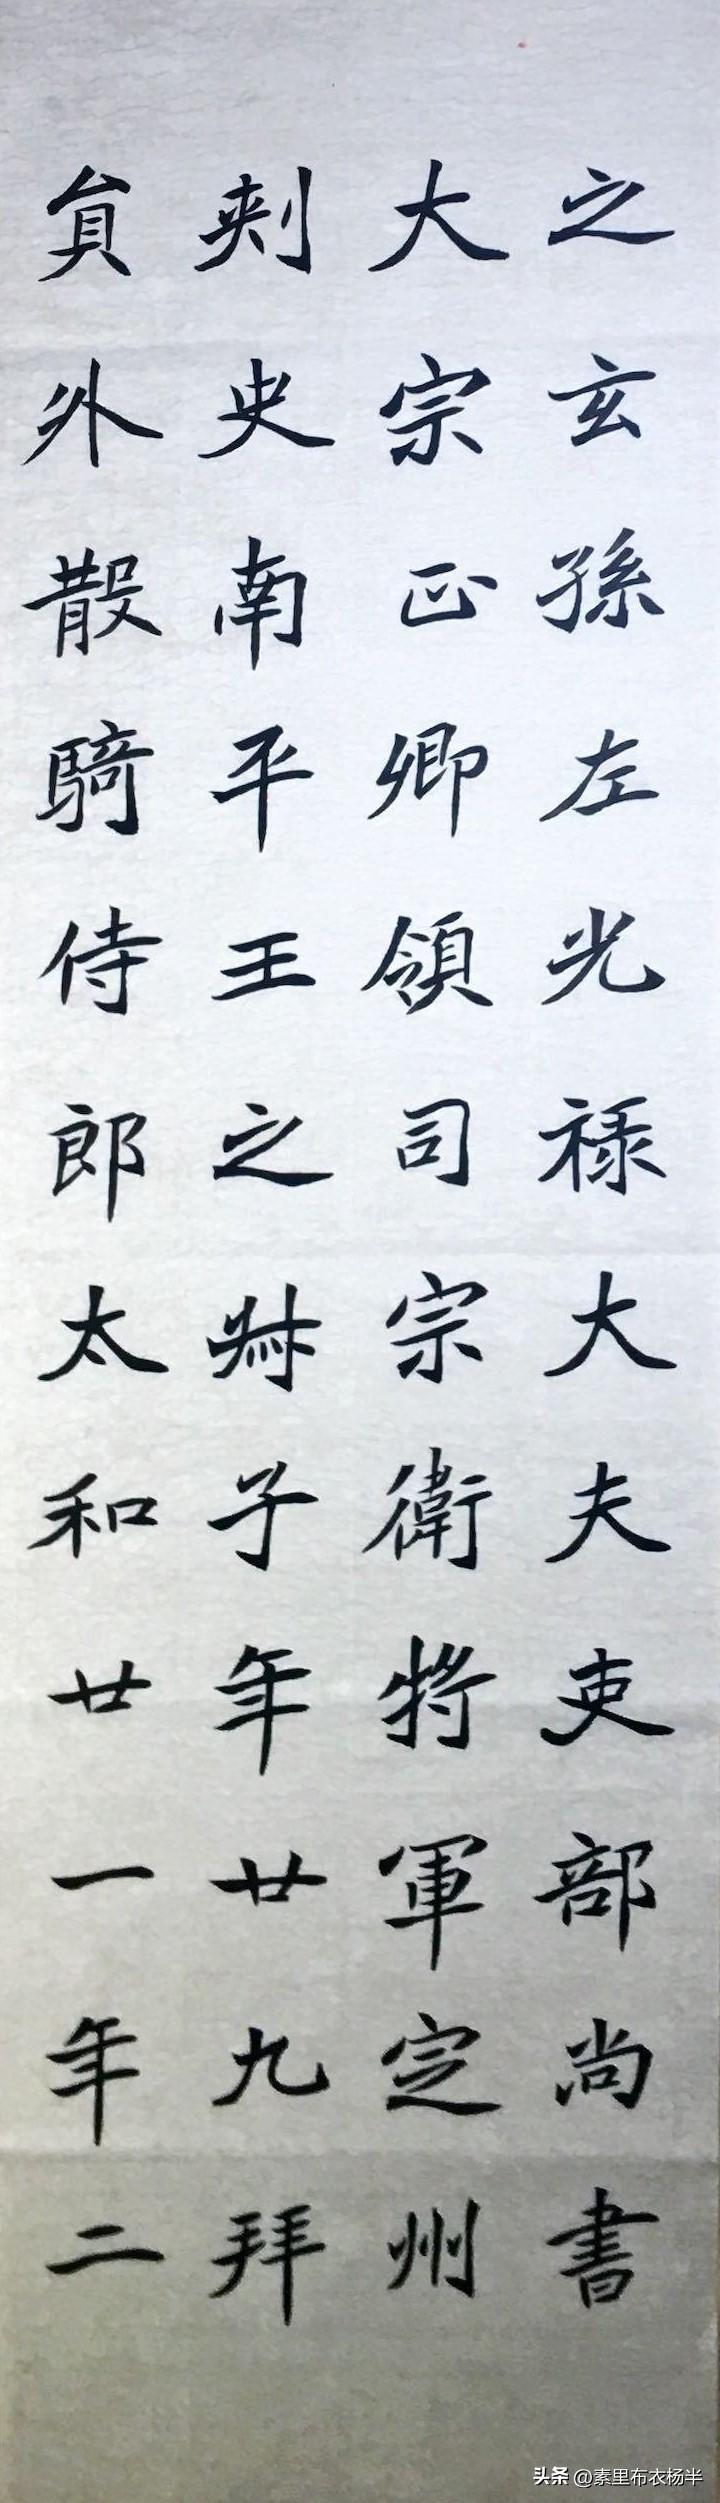 之玄孫左光祿大夫吏部尚書
大宗正卿領司宗衛將軍定州
刺史南平王之㓜子年廿九拜
員外散騎侍郎太和廿一年二
头条 @素里布衣杨半